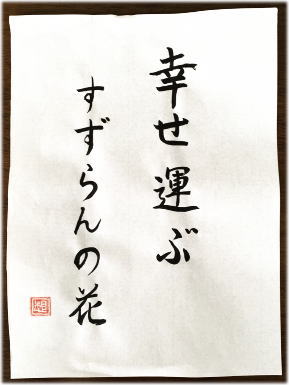 幸せ運ぶ
すずらんの花